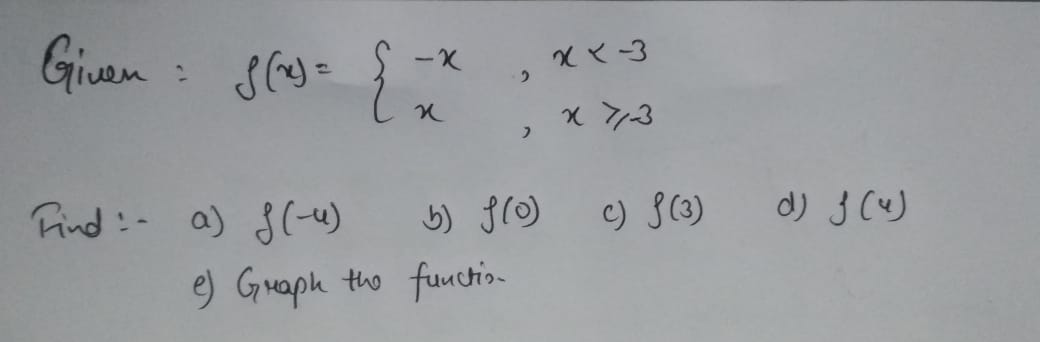 Given : f(x) = { -x , x < -3
x , x ≥ -3
Find :- a) f(-4) b) f(0) c) f(3) d) f(4)
e) Graph the function